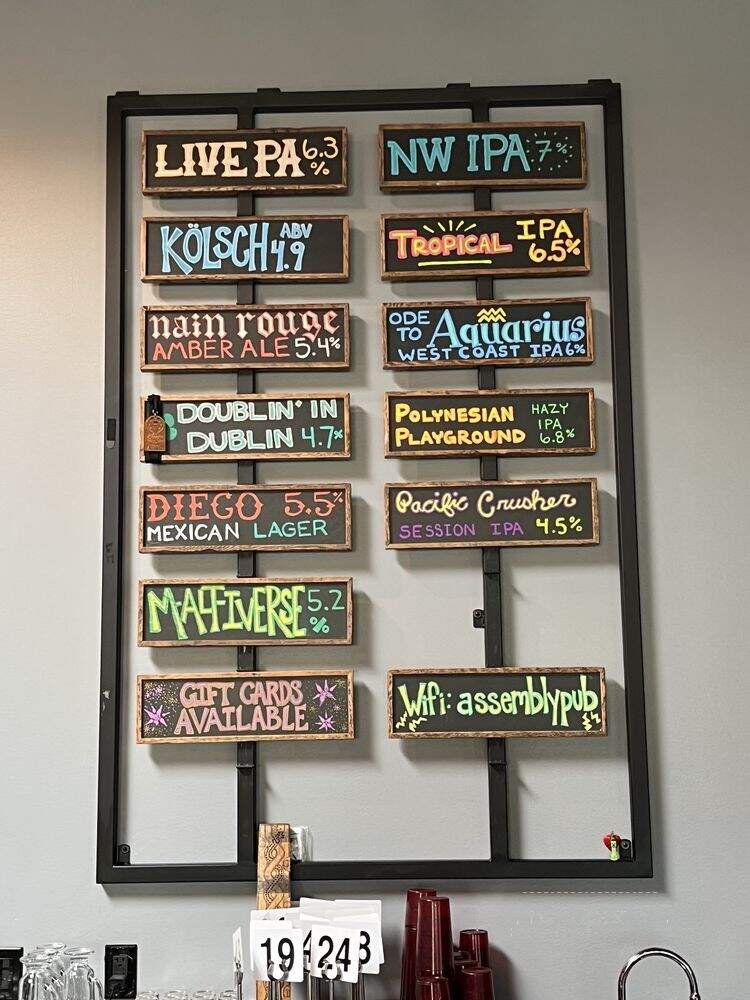 LIVE PA 6.3
%
KÖLSCH ABV
4.9
nain rouge
AMBER ALE 5.4%
DOUBLIN' IN
DUBLIN 4.7%
DIEGO 5.5%
MEXICAN LAGER
MALTIVERSE 5.2
%
GIFT CARDS
AVAILABLE
NW IPA 7%
TROPICAL IPA
6.5%
ODE
TO Aquarius
WEST COAST IPA 6%
POLYNESIAN
PLAYGROUND
HAZY
IPA
6.8%
Pacific Crusher
SESSION IPA 4.5%
Wifi: assemblypub
19
24